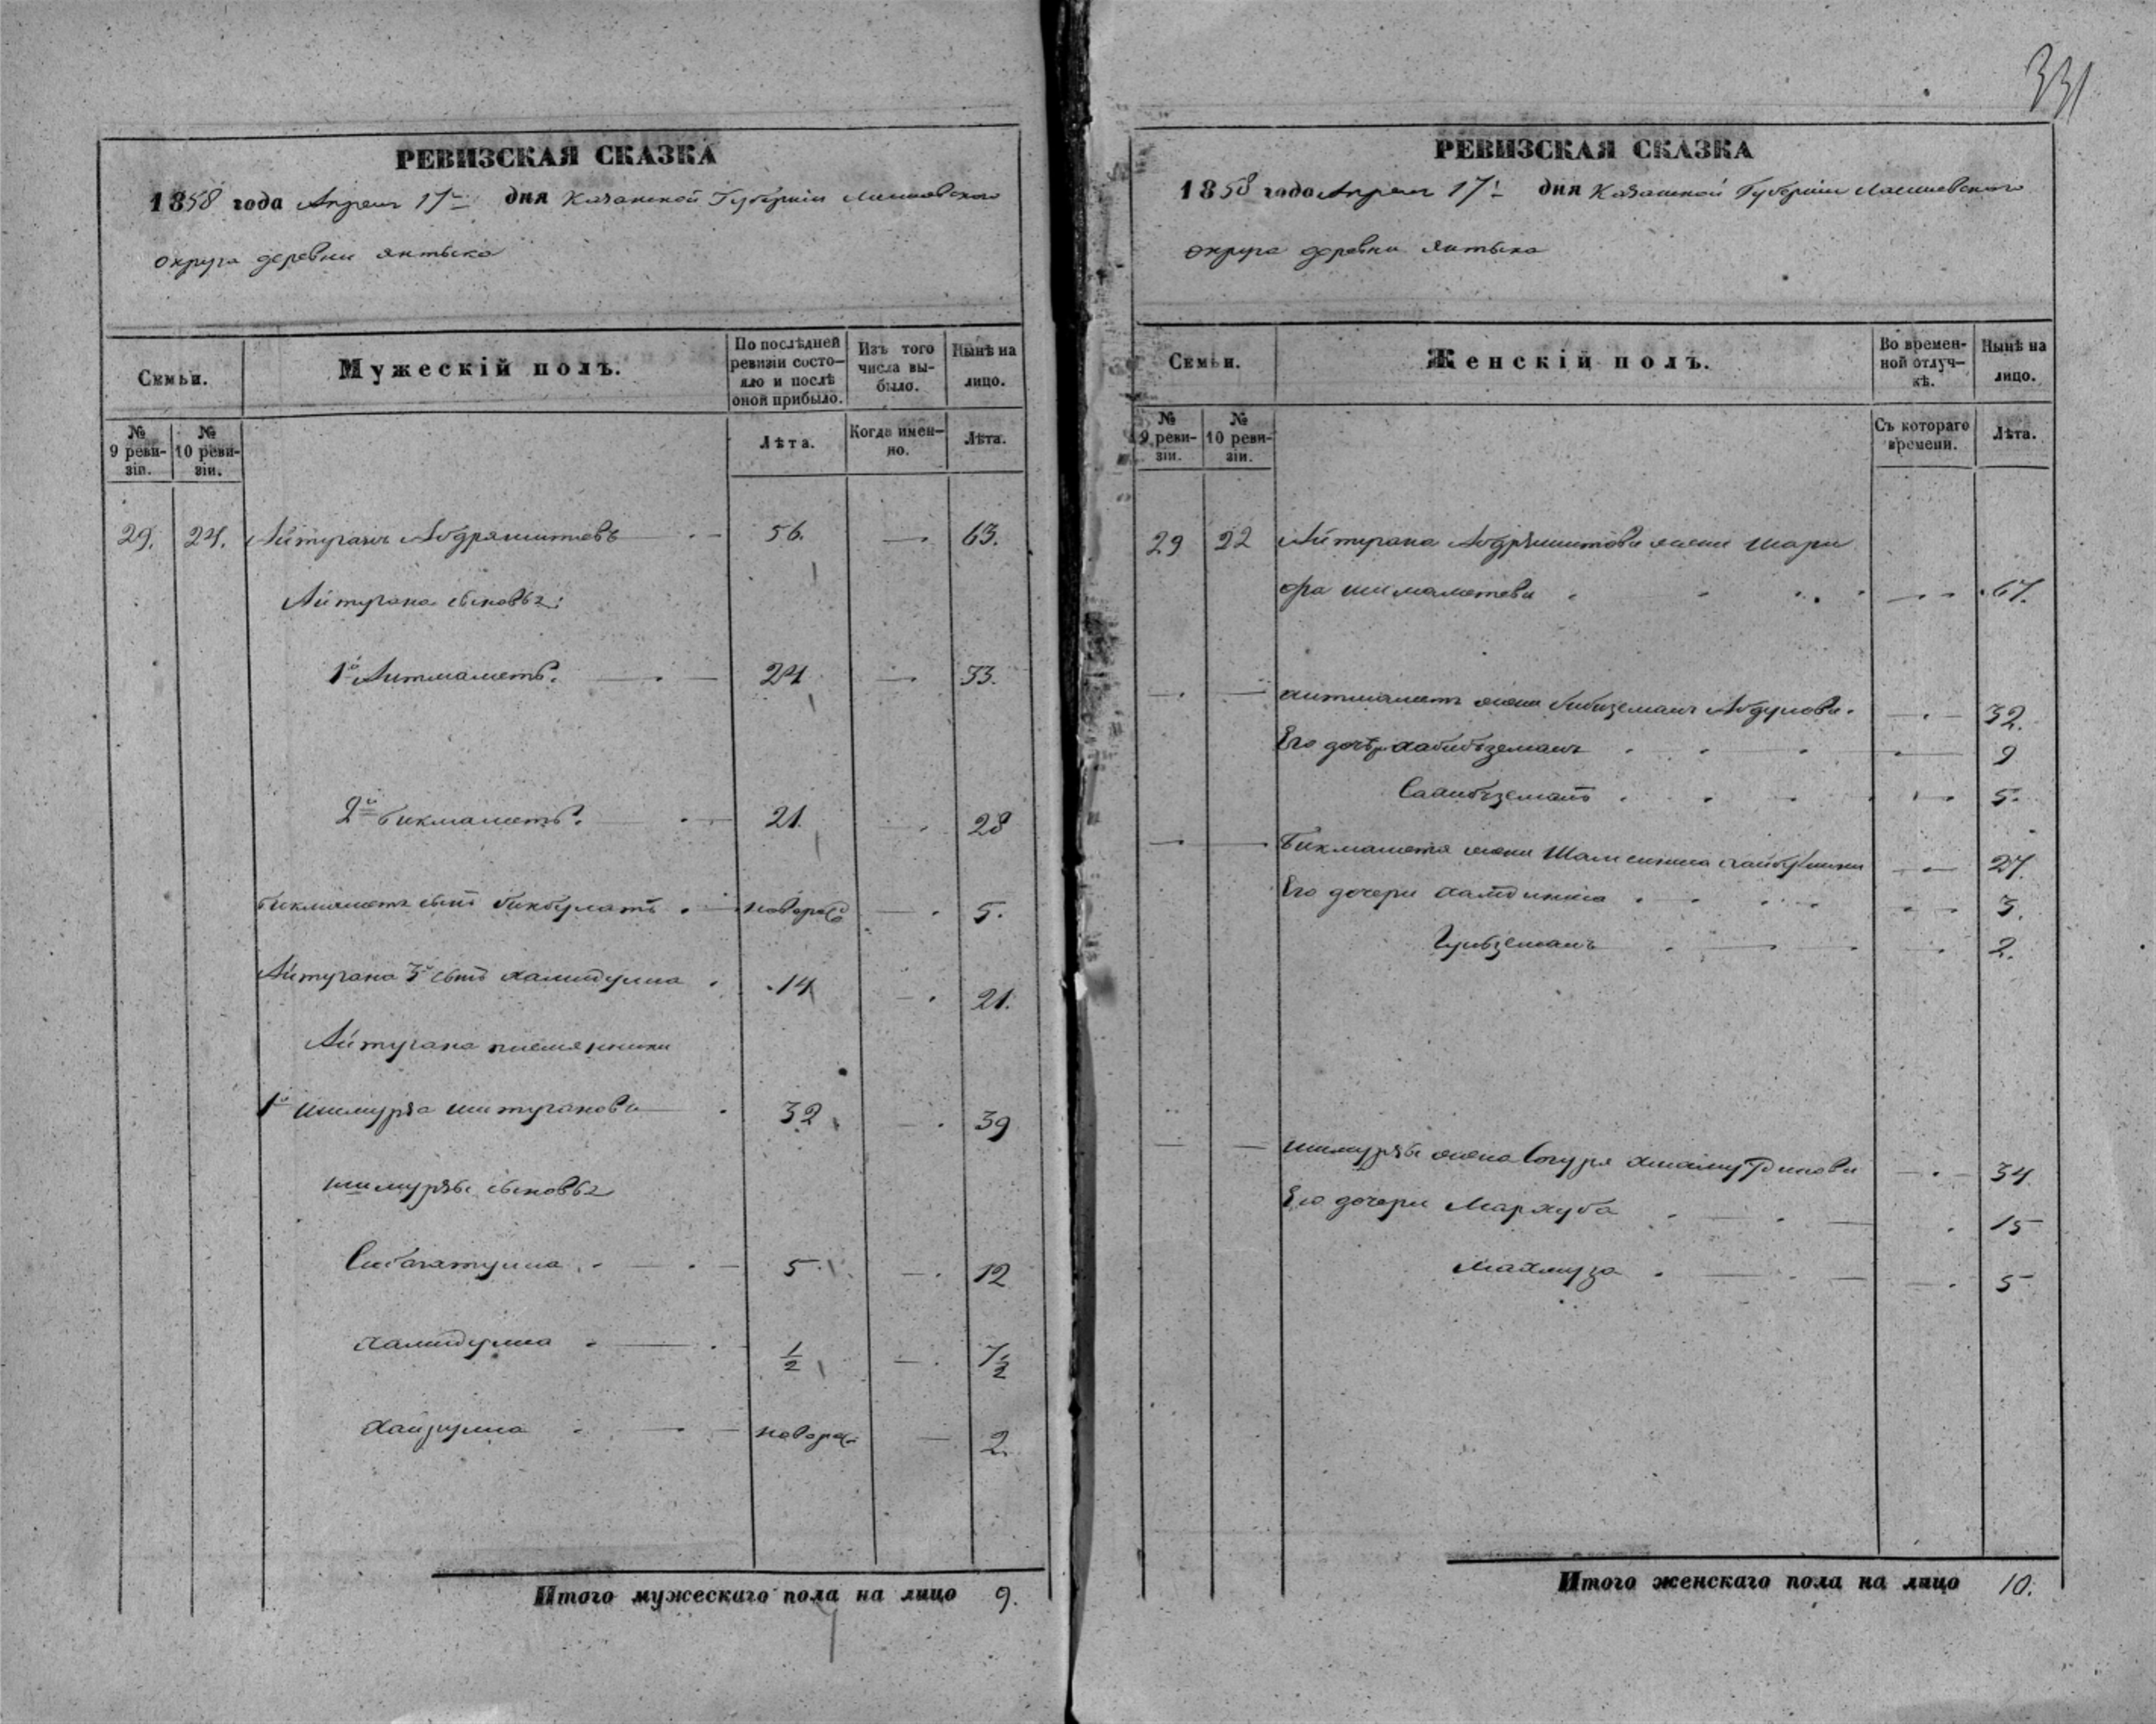 331
РЕВИЗСКАЯ СКАЗКА
1858 года Апреля 17го дня Казанской Губернiи Лаишевского
округа деревни Янтыка
Семьи.
Мужескiй полъ.
По послѣдней ревизiи состояло и послѣ оной прибыло.
Изъ того числа выбыло.
Нынѣ на лицо.
№ 9 ревизiи.
№ 10 ревизiи.
Лѣта.
Когда именно.
Лѣта.
29. Айтуганъ Абдряшитовъ 56. — 63.
Айтугана сыновья:
1й Аитмаметь. 24 — 33.
2й Бикмаметь. 21. — 28
Бикмаметя сынъ Бикбулатъ новорож — 5.
Айтугана 3й сынъ Халидулла 14 — 21.
Айтугана племянники
1й ишмурза иштуганова 32 — 39
ишмурзы сыновья
Сибагатулла 5 — 12
Халидулла 1/2 — 7 1/2
Хайрулла новорож — 2.
Итого мужескаго пола на лицо 9.
РЕВИЗСКАЯ СКАЗКА
1858 года Апреля 17го дня Казанской Губернiи Лаишевского
округа деревни Янтыка
Семьи.
Женскiй полъ.
Во временной отлучкѣ.
Нынѣ на лицо.
№ 9 ревизiи.
№ 10 ревизiи.
Съ котораго времени.
Лѣта.
29 22 Айтугана Абдряшитова жена Шари
фа ишмаметева — 67.
аитмаметя жена бибиземанъ Абдулова. — 32.
Его дочери хабибземанъ — 9
Саибземанъ — 5.
Бикмаметя жена — 27.
Его дочери — 3.
Гулбземанъ — 2.
ишмурзы жена — 34
Его дочери Мархуба — 15
Махмуза — 5
Итого женскаго пола на лицо 10.